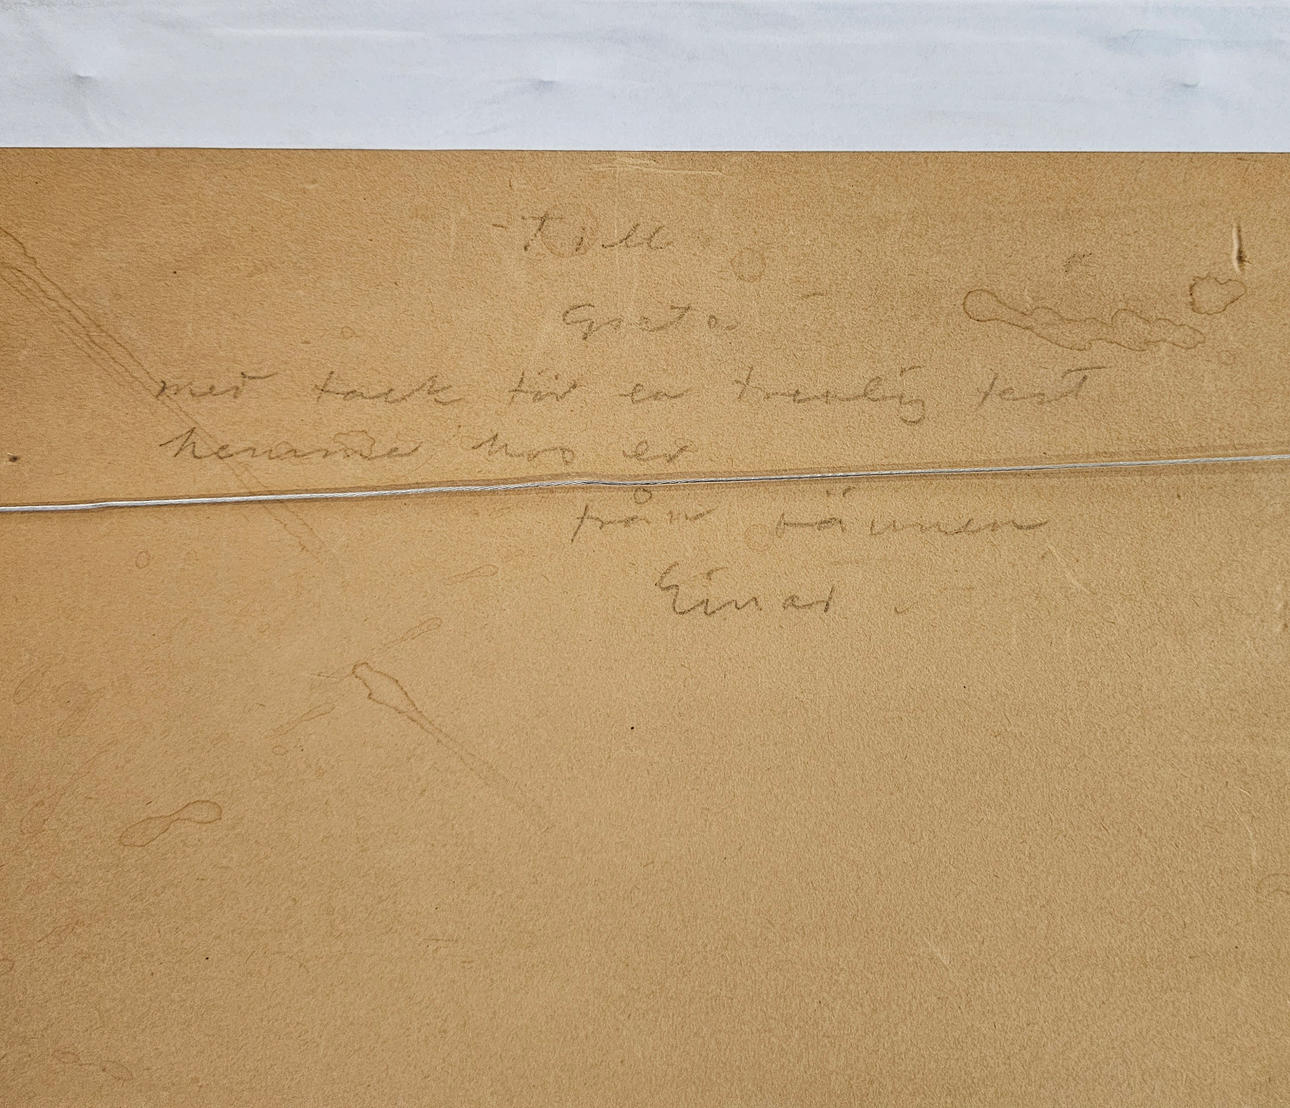 Till
Greta
med tack för en trevlig fest
hemma hos er
från vännen
Einar